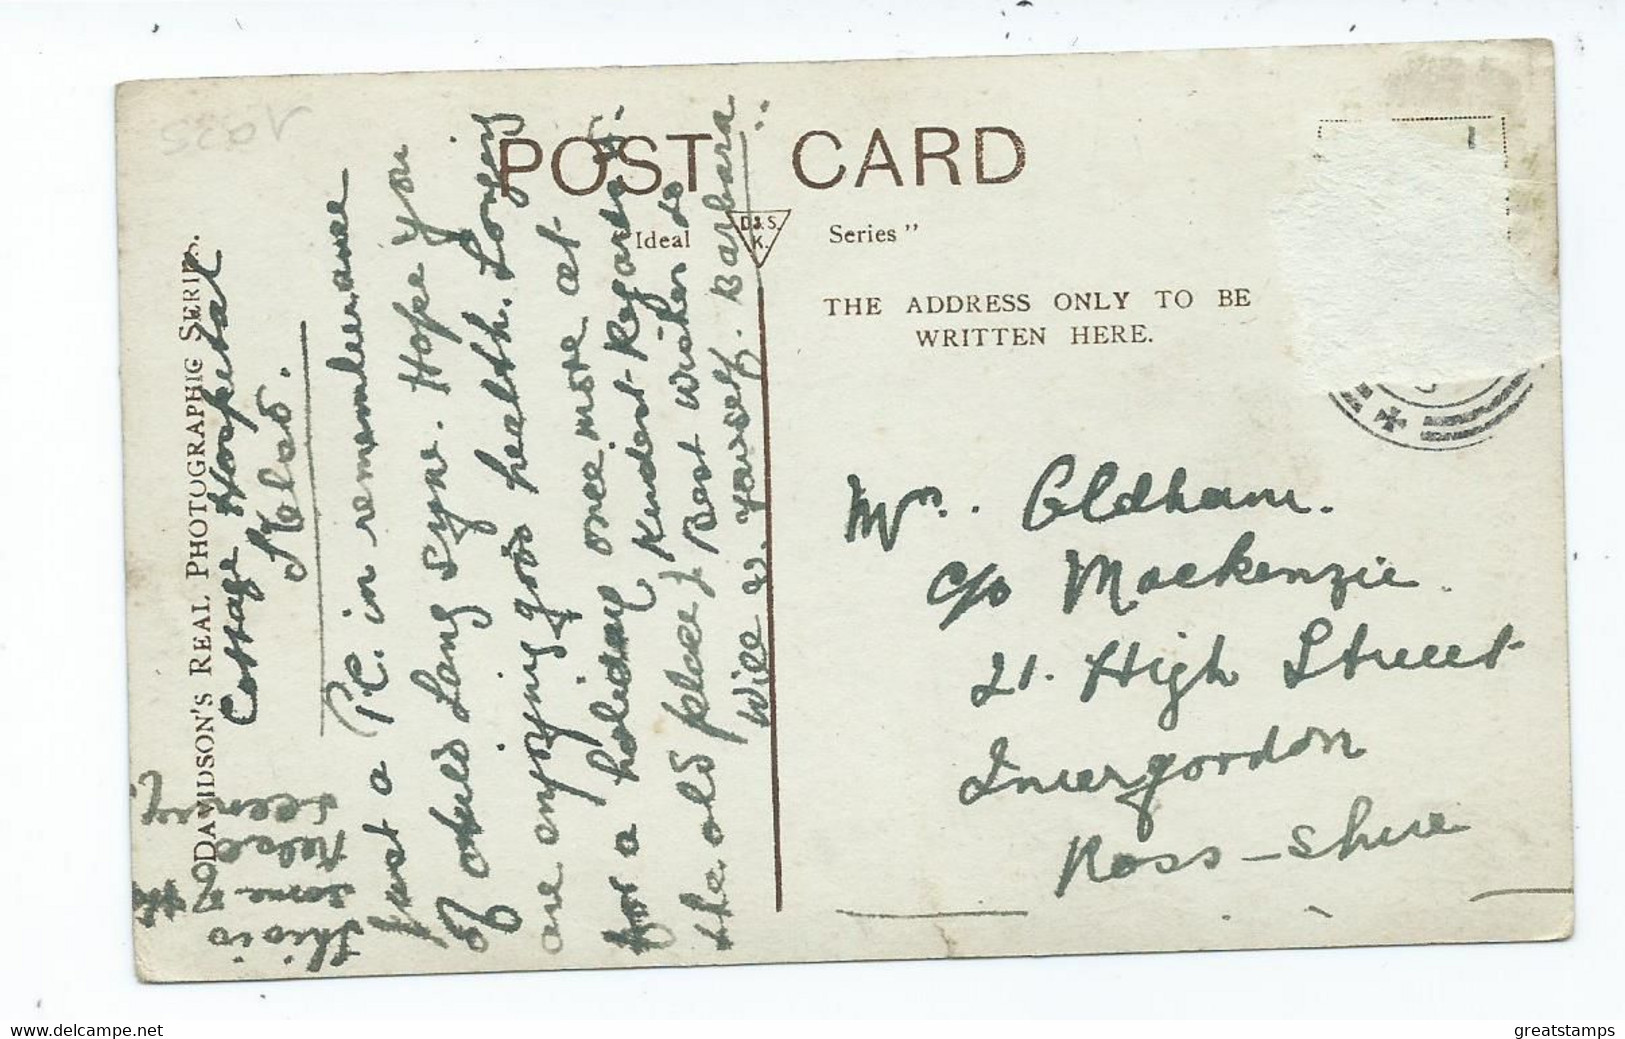 POST CARD
"Ideal D & S. K. Series"
THE ADDRESS ONLY TO BE
WRITTEN HERE.
DAVIDSON'S REAL PHOTOGRAPHIC SERIES.
Cottage Hospital
Kelso.
Just a P.C. in remembrance
of auld Lang Syne. Hope you
are enjoying good health. Longing
for a holiday once more at
the old place. Kindest Regards &
Best Wishes to
Will & yourself. Barbara
This is
some of the
Kelso
scenery.
Mrs. Oldham.
c/o Mackenzie
21. High Street
Invergordon
Ross-shire
1935
www.delcampe.net
greatstamps